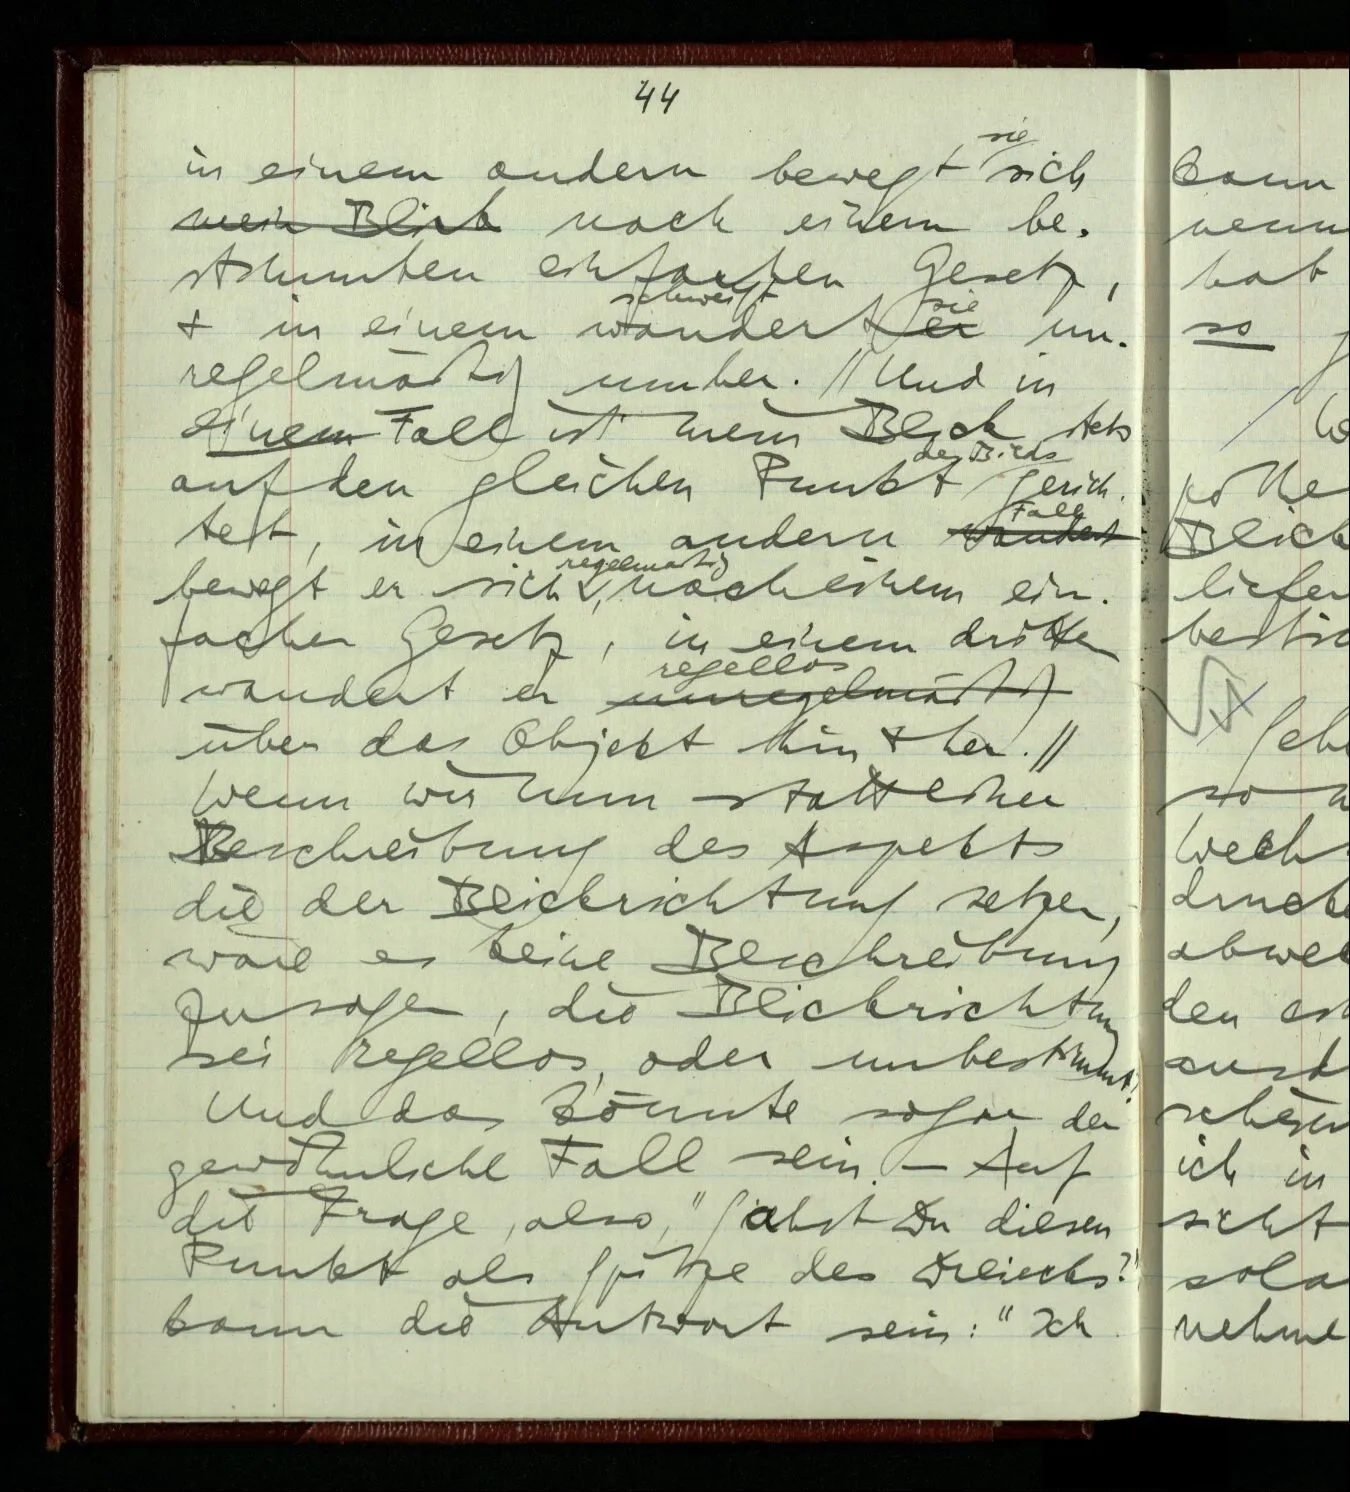 44
in einem andern bewegt sie sich
mein Blick nach einem be-
stimmten einfachen Gesetz,
schweift sie
+ in einem wandert er un-
regelmäßig umher. // Und in
einem Fall ist mein Blick stets
auf den gleichen Punkt des Bilds gerich-
tet, in einem andern Fall wandert
bewegt er sich regelmäßig, nach einem ein-
fachen Gesetz, in einem dritten
regellos
wandert er unregelmäßig
über das Objekt hin + her. //
Wenn wir nun statt einer
Beschreibung des Aspekts
die der Blickrichtung setzen,
wäre es keine Beschreibung
zu sagen, die Blickrichtung
sei regellos, oder unbestimmt.
Und das könnte sogar der
gewöhnliche Fall sein. – Auf
die Frage, also, "Sahst Du diesen
Punkt als Spitze des Dreiecks?"
kann die Antwort sein: "Ich
kann
wenn
hat
so
Blick
liefer
so
den
ich in
sicht
nehme